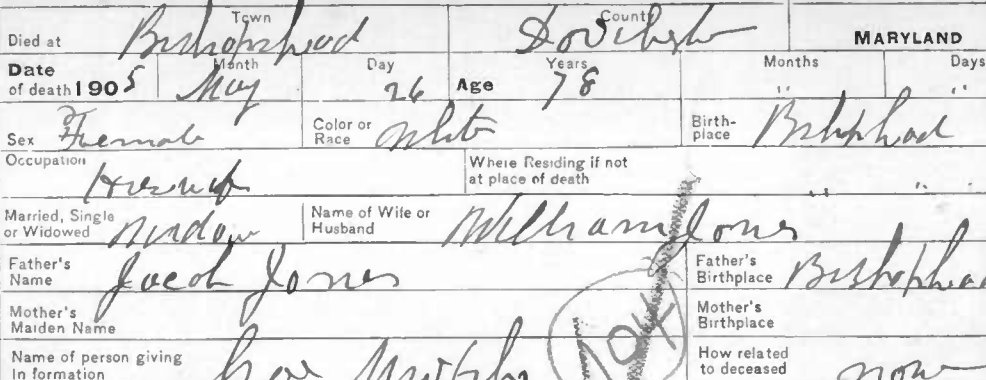 Died at Town Bishopshead County Dorchester MARYLAND
Date of death 1905 Month May Day 26 Age Years 78 Months " Days "
Sex Female Color or Race White Birth-place Bishophead
Occupation Housewife Where Residing if not at place of death " "
Married, Single or Widowed Widow Name of Wife or Husband William Jones
Father's Name Jacob Jones Father's Birthplace Bishophead
Mother's Maiden Name Mother's Birthplace
Name of person giving In formation Murphy How related to deceased none
104